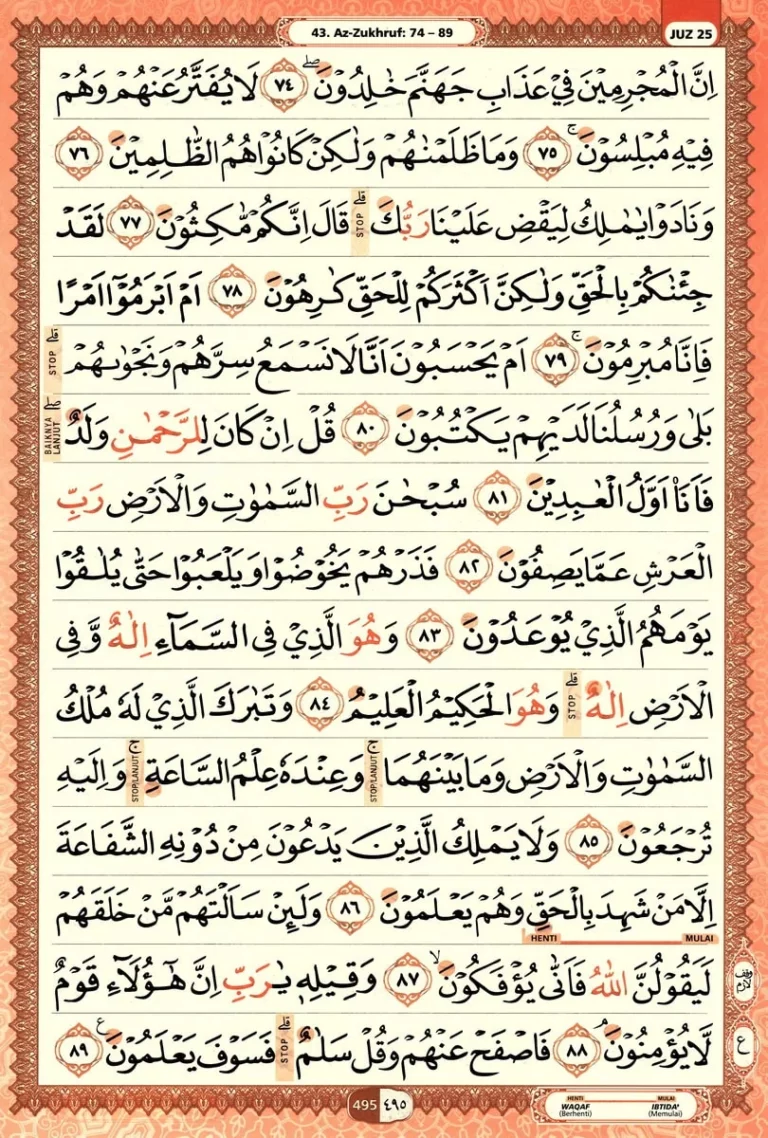 43. Az-Zukhruf: 74 – 89
JUZ 25
اِنَّ الْمُجْرِمِيْنَ فِيْ عَذَابِ جَهَنَّمَ خٰلِدُوْنَۖ ٧٤ لَا يُفَتَّرُ عَنْهُمْ وَهُمْ
فِيْهِ مُبْلِسُوْنَۚ ٧٥ وَمَا ظَلَمْنٰهُمْ وَلٰكِنْ كَانُوْا هُمُ الظّٰلِمِيْنَ ٧٦
وَنَادَوْا يٰمٰلِكُ لِيَقْضِ عَلَيْنَا رَبُّكَۗ STOP قَالَ اِنَّكُمْ مّٰكِثُوْنَ ٧٧ لَقَدْ
جِئْنٰكُمْ بِالْحَقِّ وَلٰكِنَّ اَكْثَرَكُمْ لِلْحَقِّ كٰرِهُوْنَ ٧٨ اَمْ اَبْرَمُوْٓا اَمْرًا
فَاِنَّا مُبْرِمُوْنَۚ ٧٩ اَمْ يَحْسَبُوْنَ اَنَّا لَا نَسْمَعُ سِرَّهُمْ وَنَجْوٰىهُمْۗ STOP
بَلٰى وَرُسُلُنَا لَدَيْهِمْ يَكْتُبُوْنَ ٨٠ قُلْ اِنْ كَانَ لِلرَّحْمٰنِ وَلَدٌۖ BAIKNYA LANJUT
فَاَنَا۠ اَوَّلُ الْعٰبِدِيْنَ ٨١ سُبْحٰنَ رَبِّ السَّمٰوٰتِ وَالْاَرْضِ رَبِّ
الْعَرْشِ عَمَّا يَصِفُوْنَ ٨٢ فَذَرْهُمْ يَخُوْضُوْا وَيَلْعَبُوْا حَتّٰى يُلٰقُوْا
يَوْمَهُمُ الَّذِيْ يُوْعَدُوْنَ ٨٣ وَهُوَ الَّذِيْ فِى السَّمَاۤءِ اِلٰهٌ وَّفِى
الْاَرْضِ اِلٰهٌۗ STOP وَهُوَ الْحَكِيْمُ الْعَلِيْمُ ٨٤ وَتَبٰرَكَ الَّذِيْ لَهٗ مُلْكُ
السَّمٰوٰتِ وَالْاَرْضِ وَمَا بَيْنَهُمَاۚ STOP/LANJUT وَعِنْدَهٗ عِلْمُ السَّاعَةِۚ STOP/LANJUT وَاِلَيْهِ
تُرْجَعُوْنَ ٨٥ وَلَا يَمْلِكُ الَّذِيْنَ يَدْعُوْنَ مِنْ دُوْنِهِ الشَّفَاعَةَ
اِلَّا مَنْ شَهِدَ بِالْحَقِّ وَهُمْ يَعْلَمُوْنَ ٨٦ وَلَىِٕنْ سَاَلْتَهُمْ مَّنْ خَلَقَهُمْ
HENTI MULAI
لَيَقُوْلُنَّ اللّٰهُ فَاَنّٰى يُؤْفَكُوْنَۙ ٨٧ وَقِيْلِهٖ يٰرَبِّ اِنَّ هٰٓؤُلَاۤءِ قَوْمٌ
لَّا يُؤْمِنُوْنَۘ ٨٨ فَاصْفَحْ عَنْهُمْ وَقُلْ سَلٰمٌۗ STOP فَسَوْفَ يَعْلَمُوْنَ ࣖ ٨٩
وقف لازم
ع
495 ٤٩٥
HENTI MULAI
WAQAF (Berhenti) IBTIDA' (Memulai)